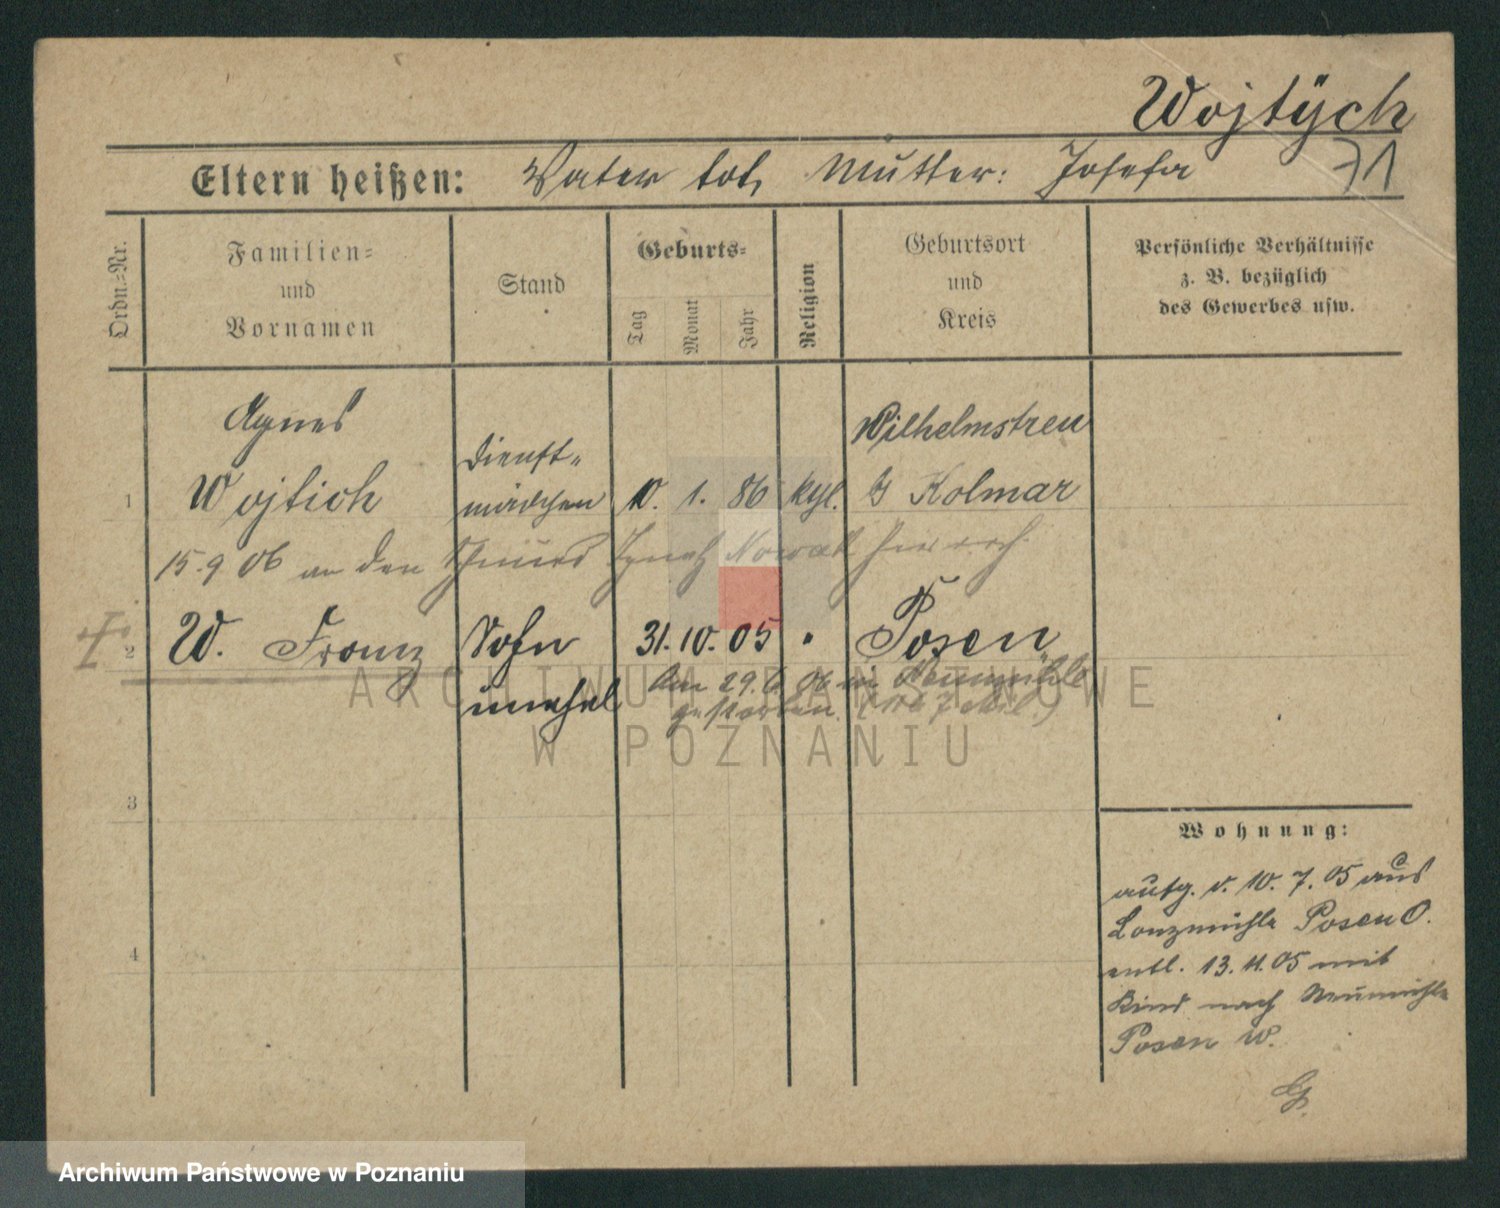 Wojtÿch
71
Eltern heißen: Vater tot, Mutter: Josefa
Ordn.-Nr.
Familien-
und
Vornamen
Stand
Geburts-
Tag
Monat
Jahr
Religion
Geburtsort
und
Kreis
Persönliche Verhältnisse
z. B. bezüglich
des Gewerbes usw.
Agnes
Wilhelmstreu
Dienst-
1 Wojtich mädchen 10. 1. 86 kth. Kolmar
15. 9 06 an den Ignatz Nowak
2 W. Franz Sohn 31. 10. 05 " Posen
unehel
Am 29. 6. 06 in Neumühle
gestorben.
3
4
Wohnung:
aufg. v. 10. 7. 05 aus
Lonzmühle Posen O.
entl. 13. 11. 05 mit
Kind nach Neumühle
Posen W.
ARCHIWUM PAŃSTWOWE
W POZNANIU
Archiwum Państwowe w Poznaniu